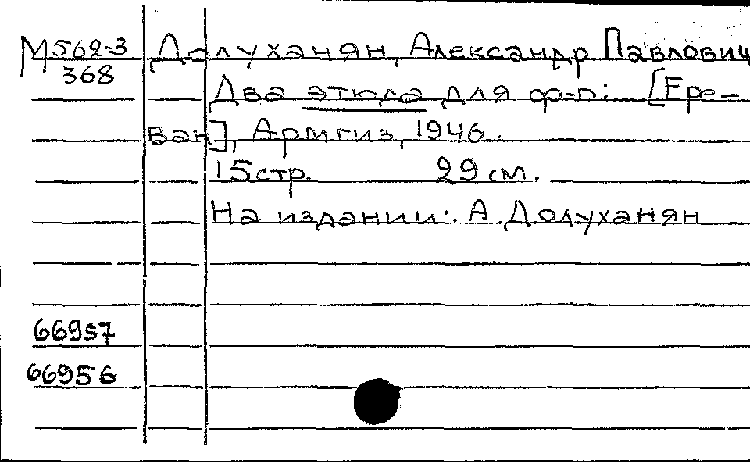 М562-3 Долуханян, Александр Павлович
368
Два этюда для ф-п: [Ере-
ван], Армгиз, 1946.
15 стр. 29 см.
На издании: А. Долуханян
66957
66956